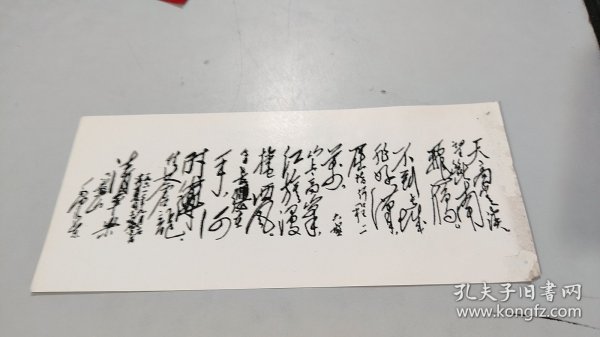 天高云淡
望断南
飞雁
不到长城
非好汉
屈指行程二
万
六盘
山上高峰
红旗漫
卷西风
今日长缨在
手何
时缚
住苍龙
清平乐
毛泽东
孔夫子旧书网
www.kongfz.com